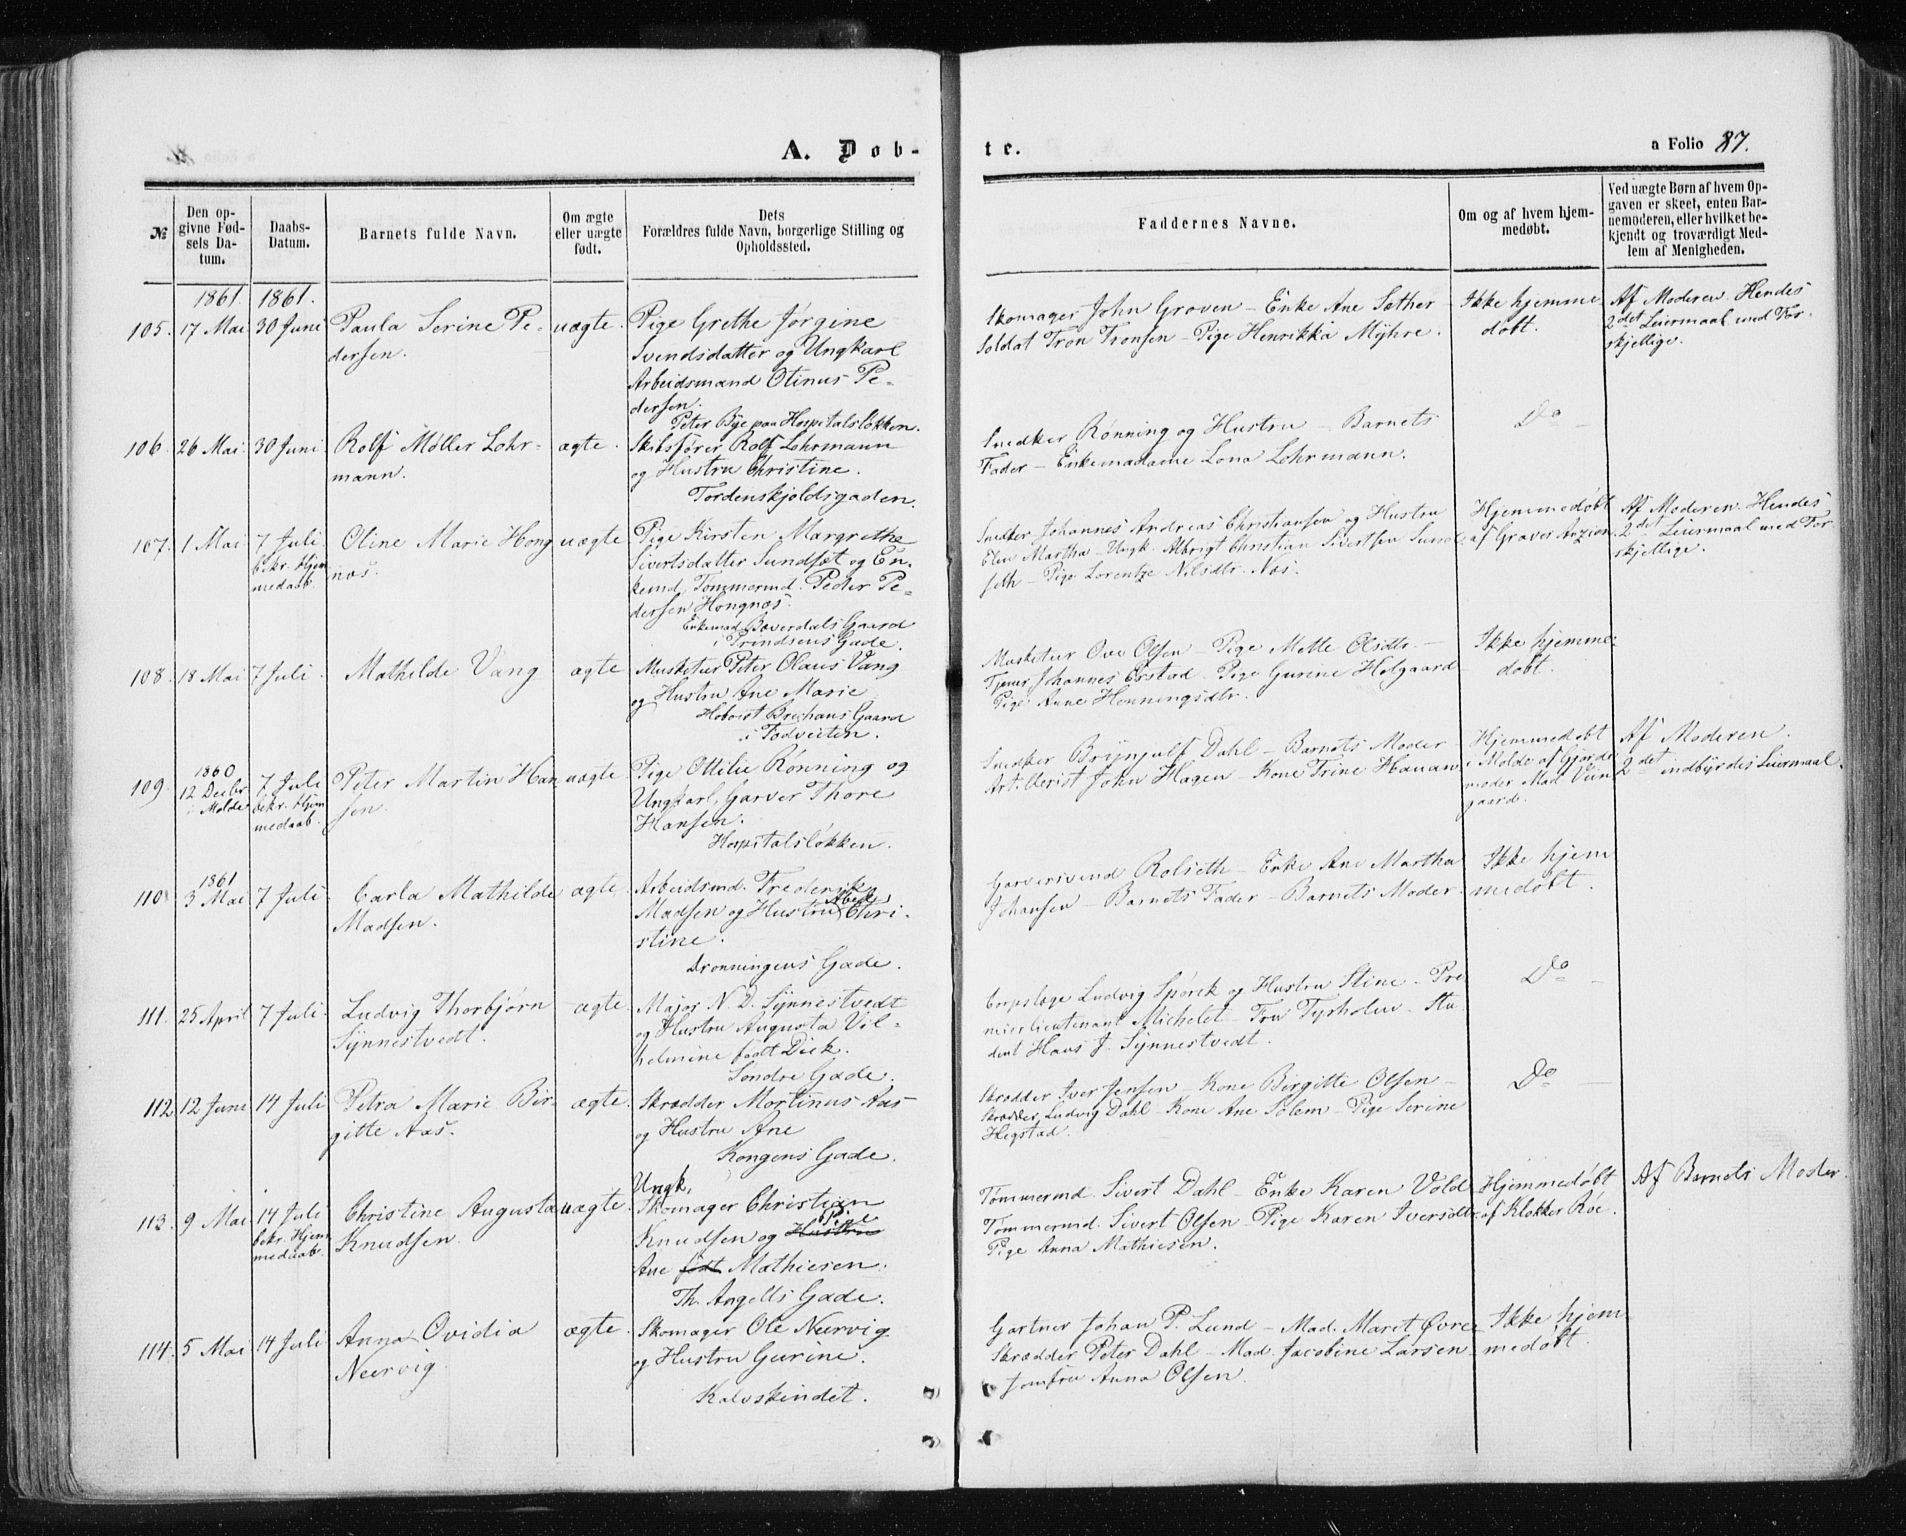 A. Døb-
te.
a Folio 87.
№
Den opgivne Fødsels Datum.
Daabs-Datum.
Barnets fulde Navn.
Om ægte eller uægte født.
Dets Forældres fulde Navn, borgerlige Stilling og Opholdssted.
Faddernes Navne.
Om og af hvem hjemmedøbt.
Ved uægte Børn af hvem Opgaven er skeet, enten Barnemoderen, eller hvilket bekjendt og troværdigt Medlem af Menigheden.
1861. 1861.
105. 17 Mai 30 Juni Paula Serine Pe- uægte. Pige Grethe Jørgine
dersen. Svendsdatter og Ungkarl
Arbeidsmand Otinus Pe-
dersen.
Peter Bye paa Hospitalsløkken.
Skomager John Groven - Enke Ane Sæther
Soldat Tron Tronsen - Pige Henrikka Myhre.
Ikke hjemme
døbt.
Af Moderen. Hendes
2det Leiermaal med For-
skjellige.
106. 26 Mai 30 Juni Rolf Møller Lohr- ægte. Skibsfører Rolf Lohrmann
mann. og Hustru Christine.
Tordenskjoldsgaden.
Snedker Rønning og Hustru - Barnets
Fader - Enkemadame Lona Lohrmann.
Do
107. 1 Mai 7 Juli Oline Marie Hong uægte Pige Kirsten Margrethe
bekr. Hjem næs. Sivertsdatter Sundsæt og En-
medaab. kemd. Tømmermd. Peder Pe-
dersen Hongnæs.
Enkemad. Bæverdals Gaard
i Prindsens Gade.
Snedker Johannes Andreas Christiansen og Hustru
Elen Martha - Ungk. Albrigt Christian Sivertsen Sund-
seth - Pige Lorentze Nilsdtr. Næs.
Hjemmedøbt
af Graver Anzion.
Af Moderen. Hendes
2det Leiermaal med For-
skjellige.
108. 18 Mai 7 Juli. Mathilde Vang ægte Musketur Peter Olaus Vang
og Hustru Ane Marie
Hoboist Brechans Gaard
i Tadveiten.
Musketur Ove Olsen - Pige Mette Olsdtr. -
Tjener Johannes Erstad. Pige Gurine Helgaard
Pige Anne Henningsdtr.
Ikke hjemme-
døbt.
1860
109. 12 Decbr 7 Juli Peter Martin Han uægte Pige Ottilie Rønning og
i Molde bekr. Hjem sen. Ungkarl, Garver Thore
medaab. Hansen.
Hospitalsløkken.
Snedker Brynjulf Dahl - Barnets Moder
Artillerist John Hagen - Kone Trine Hanan
Hjemmedøbt
i Molde af Gjorde-
moder Mad Vein
gaard.
Af Moderen.
2det indbyrdes Leiermaal.
1861
110. 3 Mai 7 Juli. Carla Mathilde ægte Arbeidsmd. Frederik
Madsen. Madsen og Hustru Abel Chri-
stine.
Dronningens Gade.
Garversvend Rolseth - Enke Ane Martha
Johansen - Barnets Fader - Barnets Moder.
Ikke hjem
medøbt.
111. 25 April 7 Juli. Ludvig Thorbjørn ægte Major N. D. Synnestvedt
Synnestvedt. og Hustru Augusta Vil-
helmine født Dick.
Søndre Gade.
Corpslæge Ludvig Spørck og Hustru Stine - Pre
mierlieutenant Michelet - Fru Tyrholm - Stu
dent Hans J. Synnestvedt.
Do
112. 12 Juni 14 Juli Petra Marie Bir- ægte. Skrædder Mortinus Aas
gitte Aas. og Hustru Ane
Kongens Gade.
Skrædder Iver Jensen - Kone Birgitte Olsen -
Skrædder Ludvig Dahl - Kone Ane Solem - Pige Serine
Hegstad.
Do
113. 9 Mai 14 Juli Christine Augusta uægte. Ungk. Skomager Christian
bekr. Hjem Knudsen. Knudsen og Hustru Pige
medaab. Ane født Mathiesen.
Th. Angells Gade.
Tømmermd. Sivert Dahl - Enke Karen Vold
Tømmermd. Sivert Olsen - Pige Karen Iversdtr.
Pige Anna Mathiesen.
Hjemmedøbt
af Klokker Røe.
Af Barnets Moder.
114. 5 Mai 14 Juli Anna Ovidia ægte. Skomager Ole Neervig
Neervig. og Hustru Gurine.
Kalvskindet.
Gartner Johan P. Lund - Mad. Marit Øvre
Skrædder Peter Dahl - Mad. Jacobine Larsen
Jomfru Anna Olsen.
Ikke hjem
medøbt.